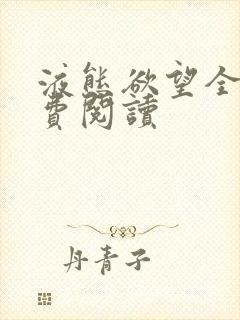 液態欲望全
費閱讀
丹青子